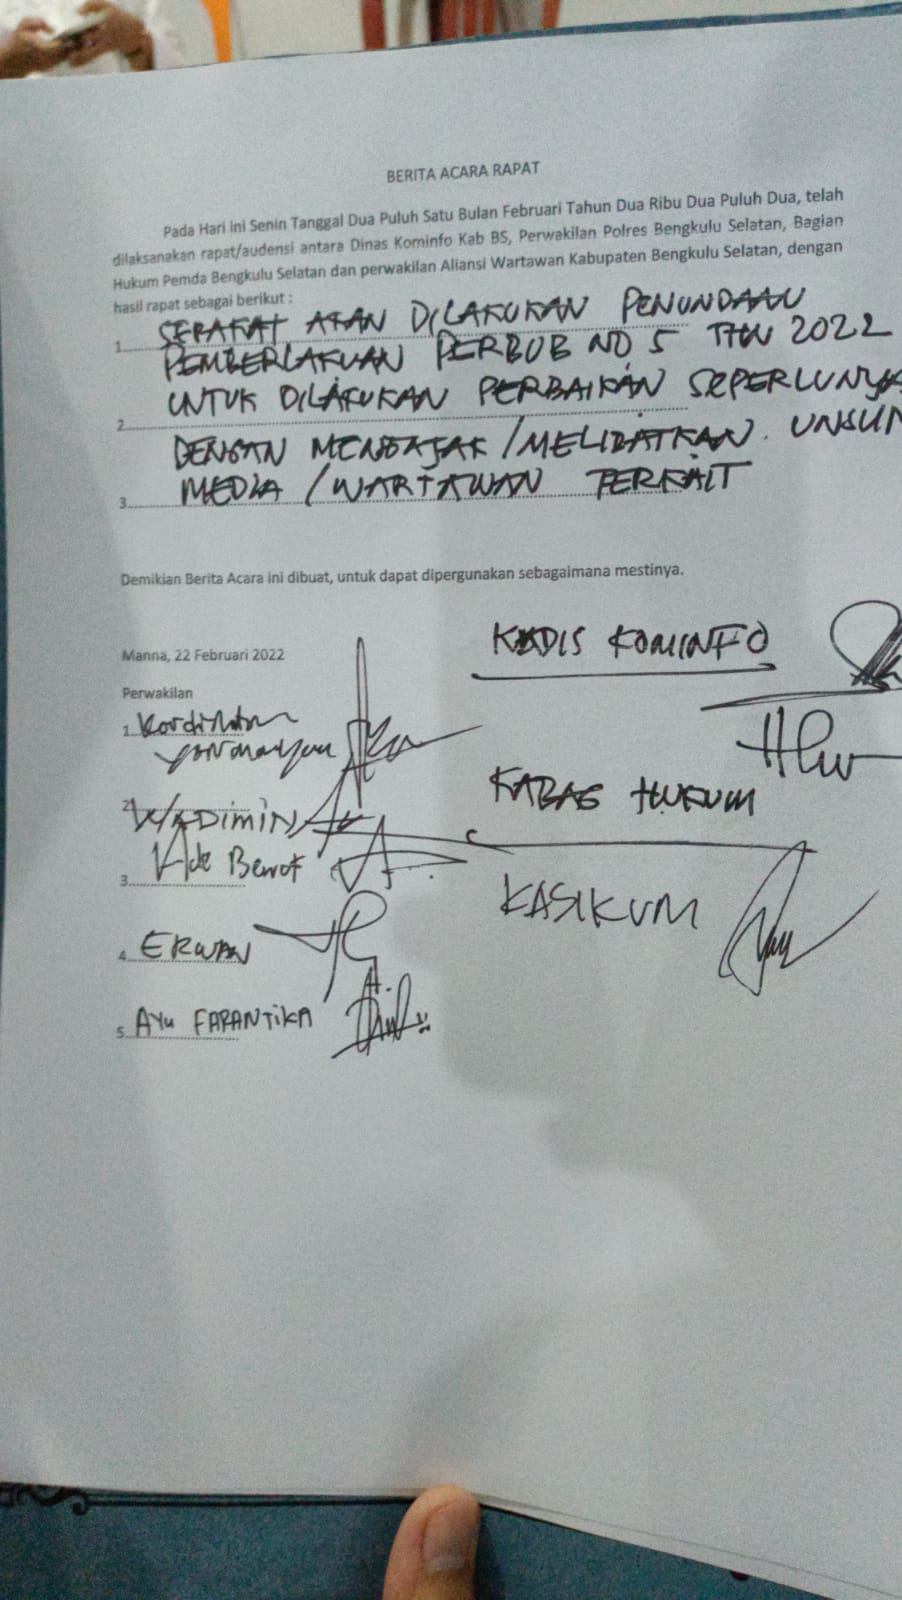 BERITA ACARA RAPAT
Pada Hari ini Senin Tanggal Dua Puluh Satu Bulan Februari Tahun Dua Ribu Dua Puluh Dua, telah
dilaksanakan rapat/audensi antara Dinas Kominfo Kab BS, Perwakilan Polres Bengkulu Selatan, Bagian
Hukum Pemda Bengkulu Selatan dan perwakilan Aliansi Wartawan Kabupaten Bengkulu Selatan, dengan
hasil rapat sebagai berikut :
1. SEPAKAT AKAN DILAKUKAN PENUNDAAN
PEMBERLAKUAN PERBUB NO 5 THN 2022
UNTUK DILAKUKAN PERBAIKAN SEPERLUNYA
2.
DENGAN MENGAJAK/MELIBATKAN UNSUR
3. MEDIA/WARTAWAN TERKAIT
Demikian Berita Acara ini dibuat, untuk dapat dipergunakan sebagaimana mestinya.
Manna, 22 Februari 2022
Perwakilan
1.
2. WADIMIN
3. Ade Bewok
4. ERWAN
5. AYU FARANTIKA
KADIS KOMINFO
KABAG HUKUM
KASIKUM